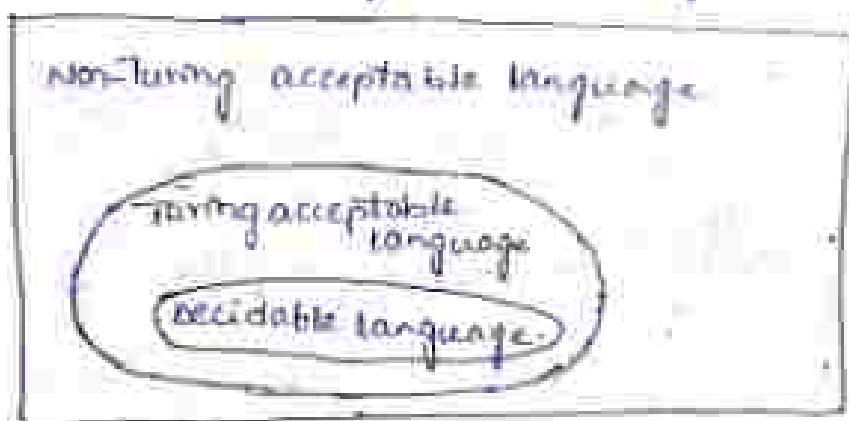 Non-Turing acceptable language
Turing acceptable
language
Decidable language.